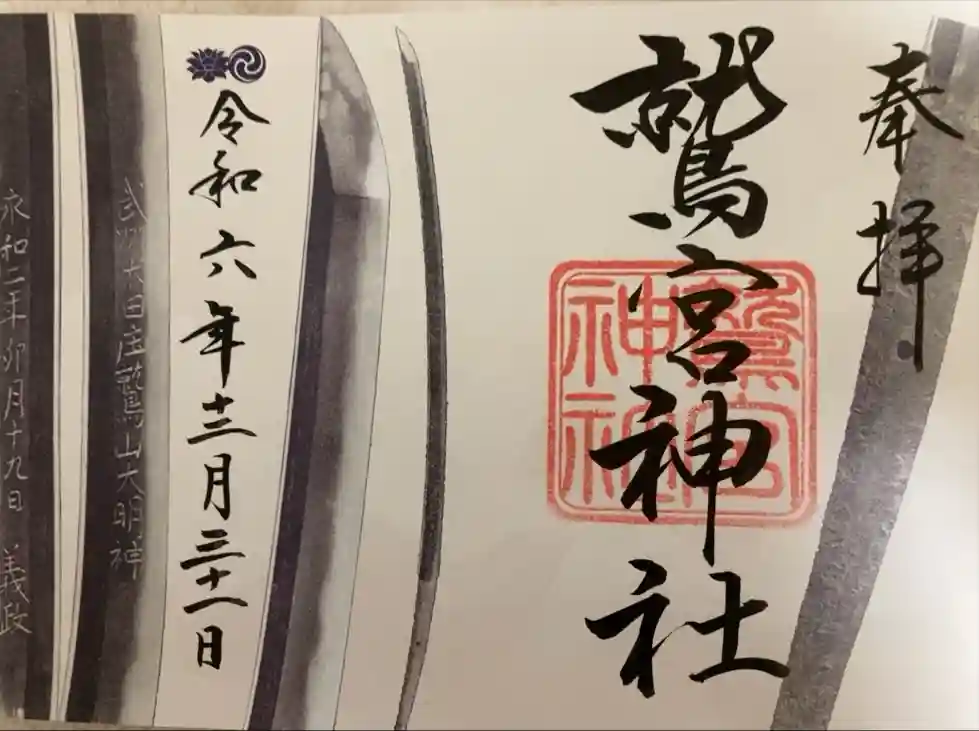 奉拝
鷲宮神社
鷲宮
神社
令和六年十二月三十一日
武州大田庄鷲山大明神
永和二年卯月十九日 義政